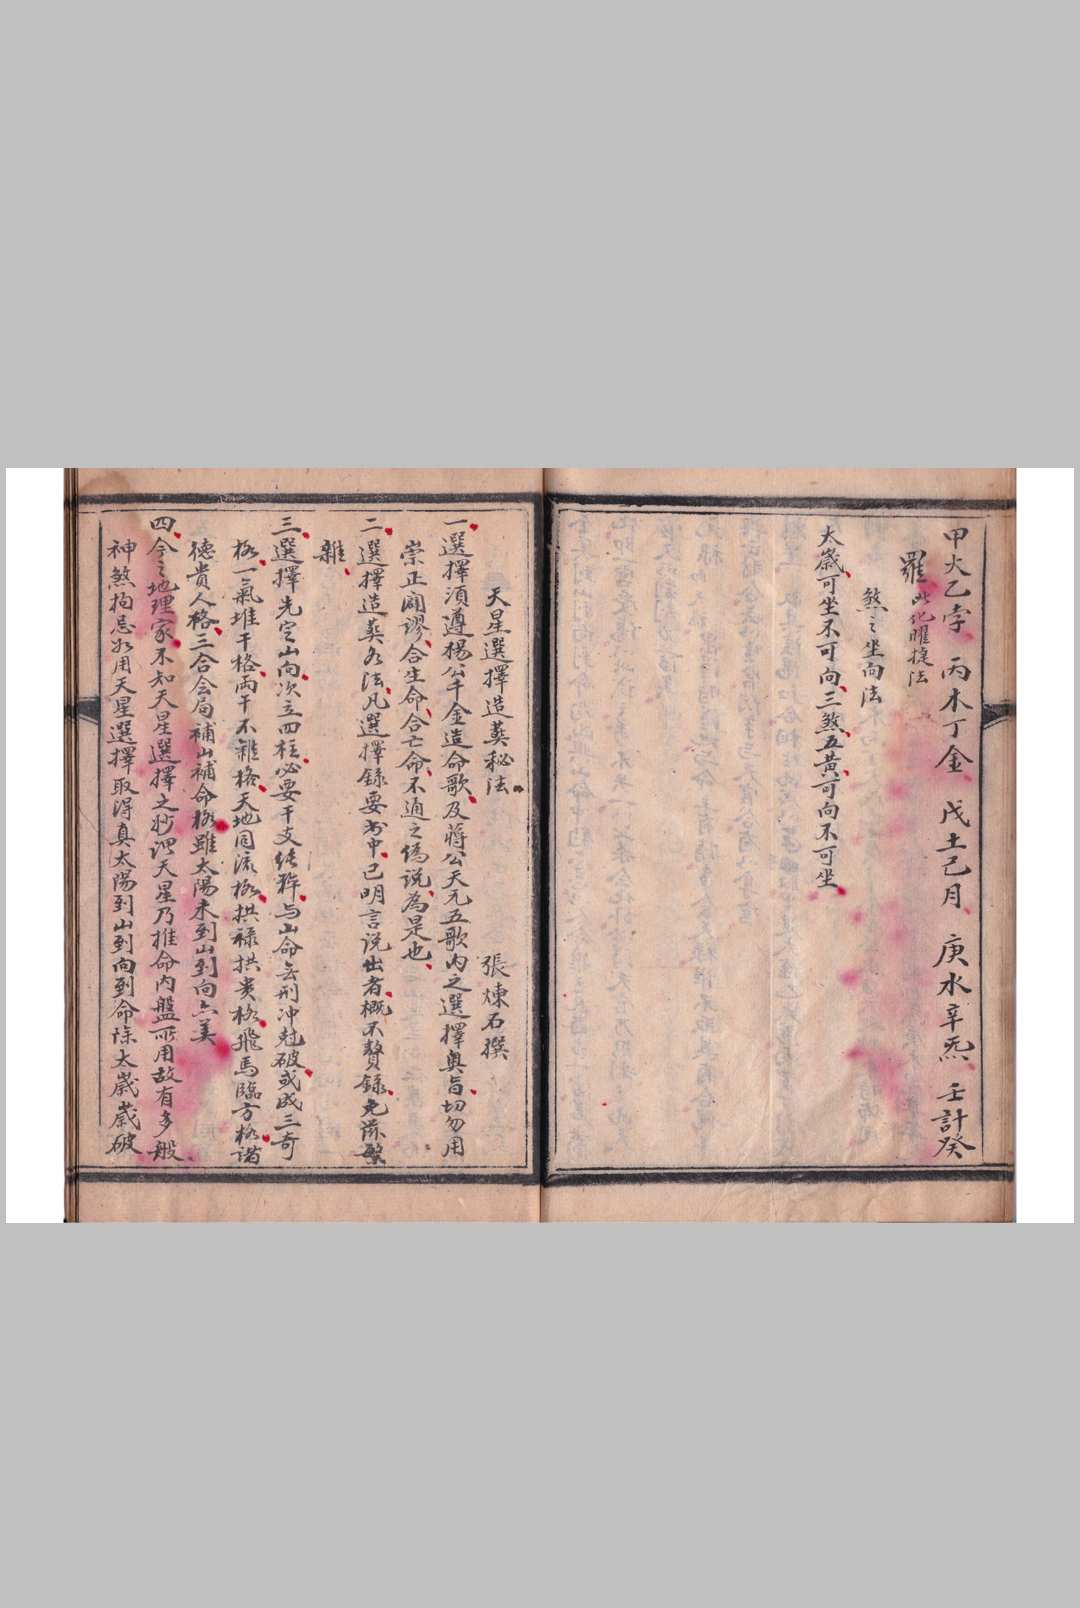 甲火乙孛　丙木丁金　戊土己月　庚水辛炁　壬計癸
羅　此化曜捷法
煞之坐向法
太歲可坐不可向三煞五黃可向不可坐
天星選擇造葬秘法　張煉石撰
一選擇須遵楊公千金造命歌及蔣公天元五歌內之選擇奧旨切勿用
崇正闢謬合生命合亡命不通之偽說為是也
二選擇造葬各法凡選擇錄要書中已明言說出者概不贅錄免蹈繁
雜
三選擇先定山向次立四柱必要干支純粹与山命無刑冲尅破或成三奇
格一氣堆干格両干不雜格天地同流格拱祿拱貴格飛馬臨方格諸
德貴人格三合会局補山補命格雖太陽未到山到向亦美
四今之地理家不知天星選擇之妙谓天星乃推命內盤所用故有多般
神煞拘忌如用天星選擇取得真太陽到山到向到命除太歲歲破